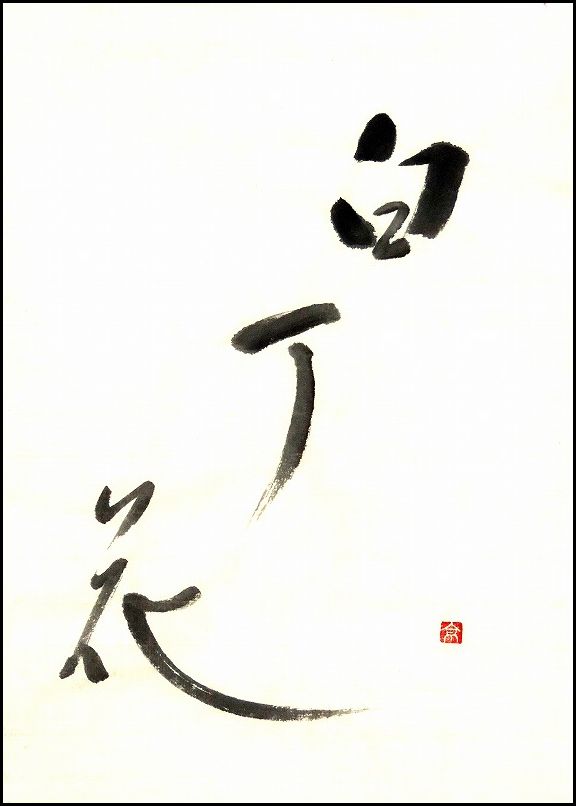 白丁花